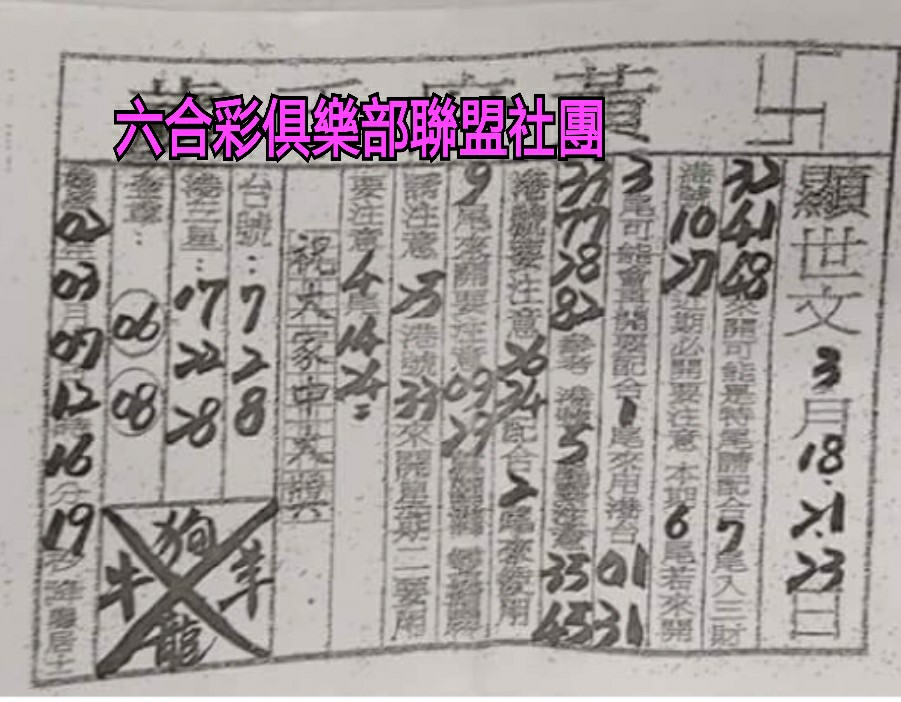 六合彩俱樂部聯盟社團
顯世文3月18.21.23日
32 41 48 來開可能是特尾請配合7尾入三財
港號10 27近期必開要注意 本期6尾若來開
3尾可能會再開要配合1尾來用港台01 31
33 77 28 82參考 港號5 35 45
港號就要注意26 24配合2尾來使用
9尾來開要注意09 29
請注意25港號33來開星期二要用
要注意4尾14 24=
祝大家中大獎
台號:7 2 8
港二星:17 22 28
:06 08
狗
牛 羊
龍
02 03月07 12時16分19